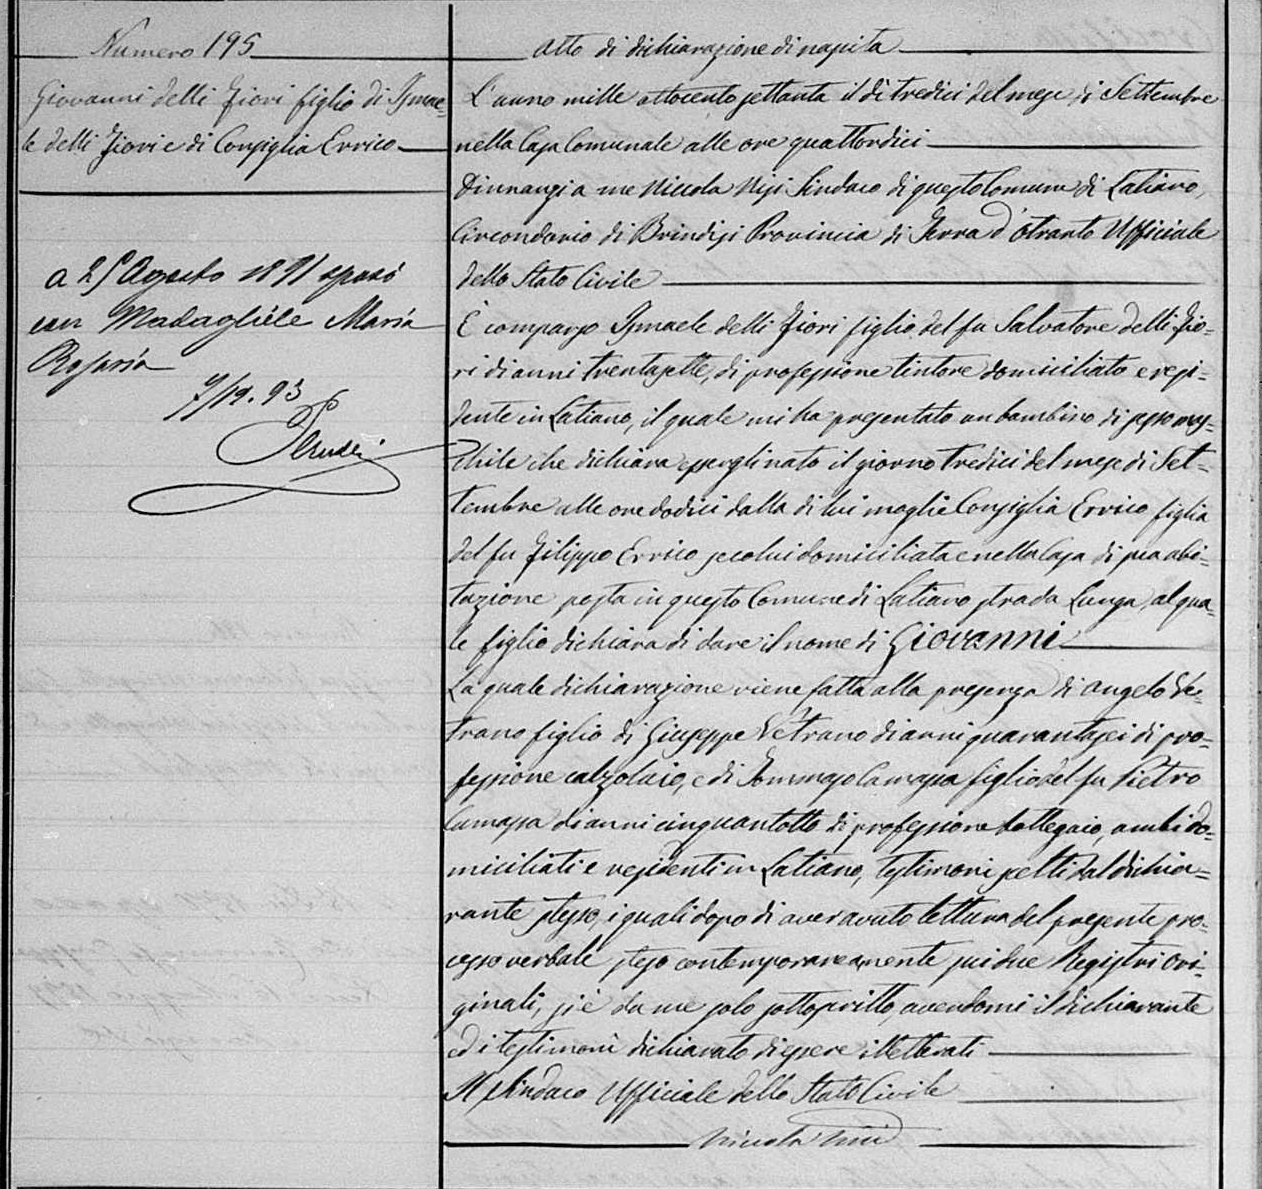 Numero 195
Giovanni delli Fiori figlio di Ismae=
le delli Fiori e di Consiglia Errico
a 25 Agosto 1891 sposò
con Madaghiele Maria
Rosaria
7/19.93
Atto di dichiarazione di nascita
L'anno mille ottocento settanta il dì tredici del mese di Settembre
nella Casa Comunale alle ore quattordici
Dinnanzi a me Niccola Nisi Sindaco di questo Comune di Latiano,
Circondario di Brindisi Provincia di Terra d'Otranto Ufficiale
dello Stato Civile
È comparso Ismaele delli Fiori figlio del fu Salvatore delli Fio=
ri di anni trentasette, di professione tintore domiciliato e resi=
dente in Latiano, il quale mi ha presentato un bambino di sesso mas=
chile che dichiara essergli nato il giorno tredici del mese di Set=
tembre alle ore dodici dalla di lui moglie Consiglia Errico figlia
del fu Filippo Errico seco lui domiciliata e nella casa di sua abi=
tazione posta in questo Comune di Latiano strada Lunga, al qua=
le figlio dichiara di dare il nome di Giovanni
La quale dichiarazione viene fatta alla presenza di Angelo Ve=
trano figlio di Giuseppe Vetrano di anni quarantasei di pro=
fessione calzolaio, e di Tommaso Camassa figlio del fu Pietro
Camassa di anni cinquantotto di professione bottegaio, ambi do=
miciliati e residenti in Latiano, testimoni scelti dal dichia=
rante stesso, i quali dopo di aver avuto lettura del presente pro=
cesso verbale steso contemporaneamente sui due Registri ori=
ginali, si è da me solo sottoscritto, avendomi il dichiarante
ed i testimoni dichiarato di essere illetterati
Il Sindaco Ufficiale dello Stato Civile
Niccola Nisi